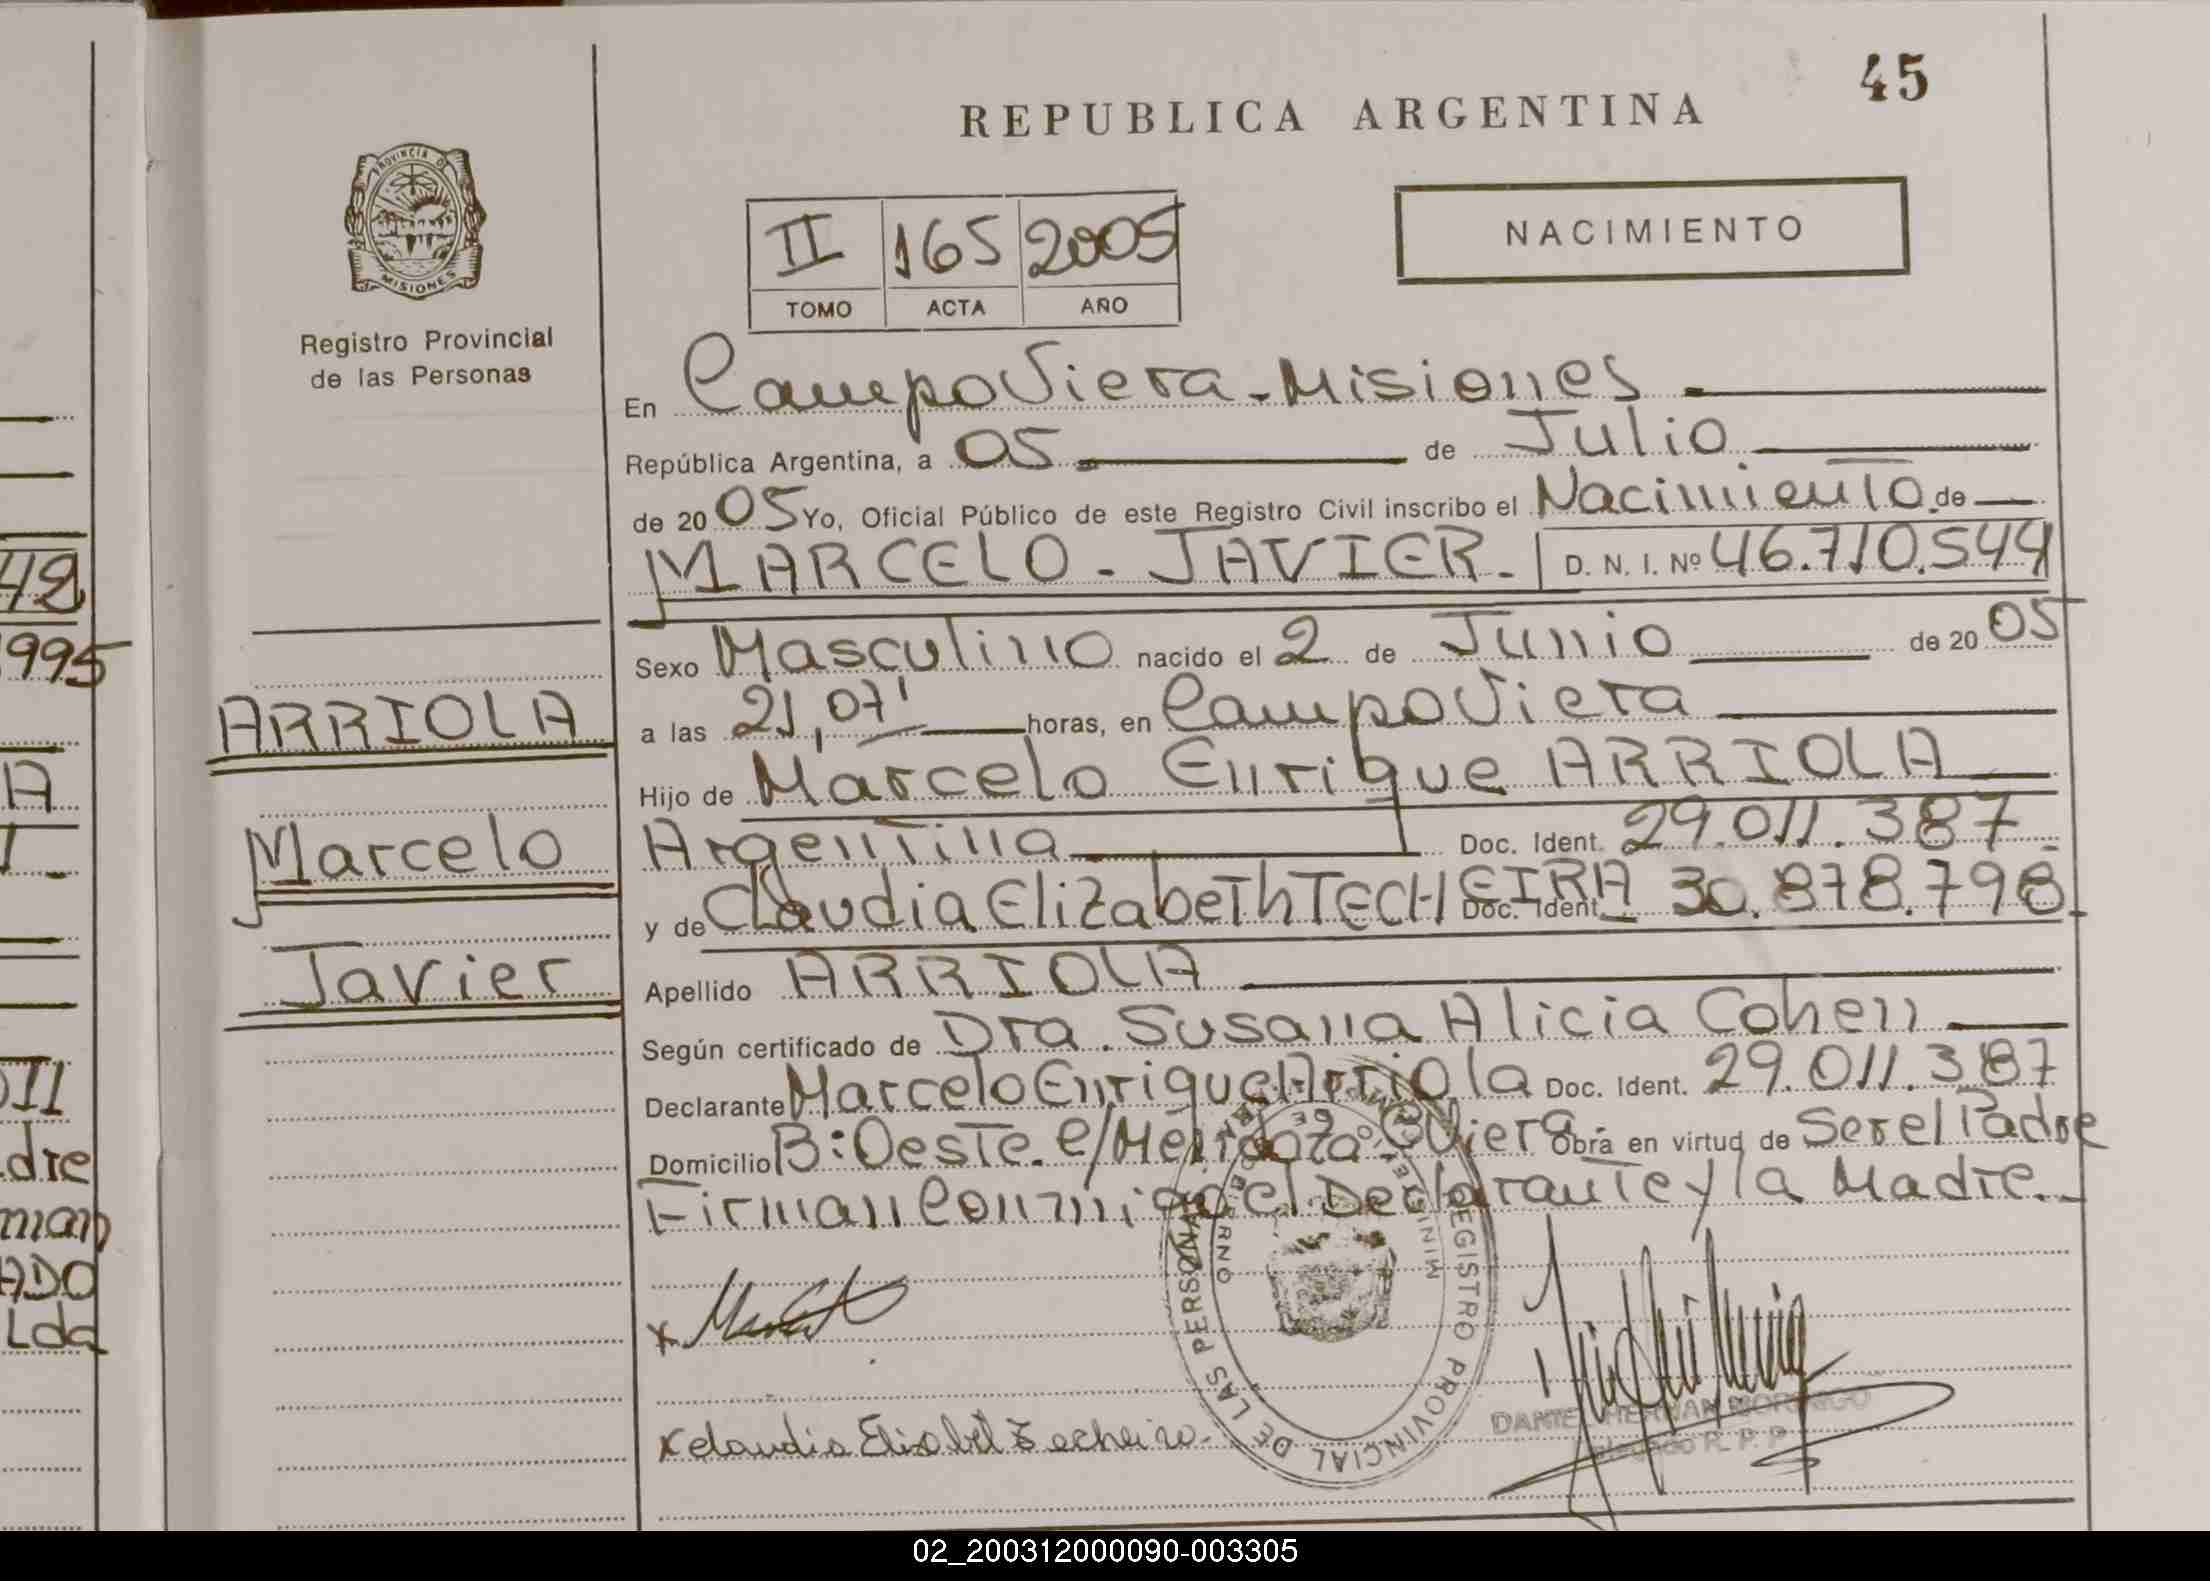 45
REPUBLICA ARGENTINA
PROVINCIA DE
MISIONES
Registro Provincial
de las Personas
NACIMIENTO
II 165 2005
TOMO ACTA AÑO
En Campo Viera - Misiones
República Argentina, a 05 de Julio
de 2005 Yo, Oficial Público de este Registro Civil inscribo el Nacimiento de
MARCELO - JAVIER - D. N. I. Nº 46.710.544
Sexo Masculino nacido el 2 de Junio de 2005
a las 21,07' horas, en Campo Viera
Hijo de Marcelo Enrique ARRIOLA
Argentina Doc. Ident. 29.011.387
y de Claudia Elizabeth TECHEIRA Doc. Ident. 30.878.798
Apellido ARRIOLA
Según certificado de Dra. Susana Alicia Cohen
Declarante Marcelo Enrique Arriola Doc. Ident. 29.011.387
Domicilio B: Oeste. e/Mendoza C Viera Obra en virtud de Ser el Padre
Firman Conmigo el Declarante y la Madre.
ARRIOLA
Marcelo
Javier
x
x Claudia Elisabet Techeira
REGISTRO PROVINCIAL DE LAS PERSONAS
DANIEL HERNAN MORINIGO
Delegado R. P. P.
42
1995
A
OII
dre
man
ADO
Lda
02_200312000090-003305